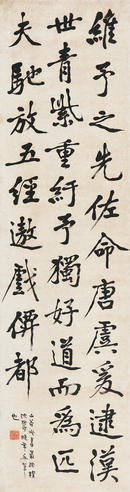 維予之先佐命唐虞爰逮漢
世青紫重紆予獨好道而為匹
夫馳放五經遨戲儕都